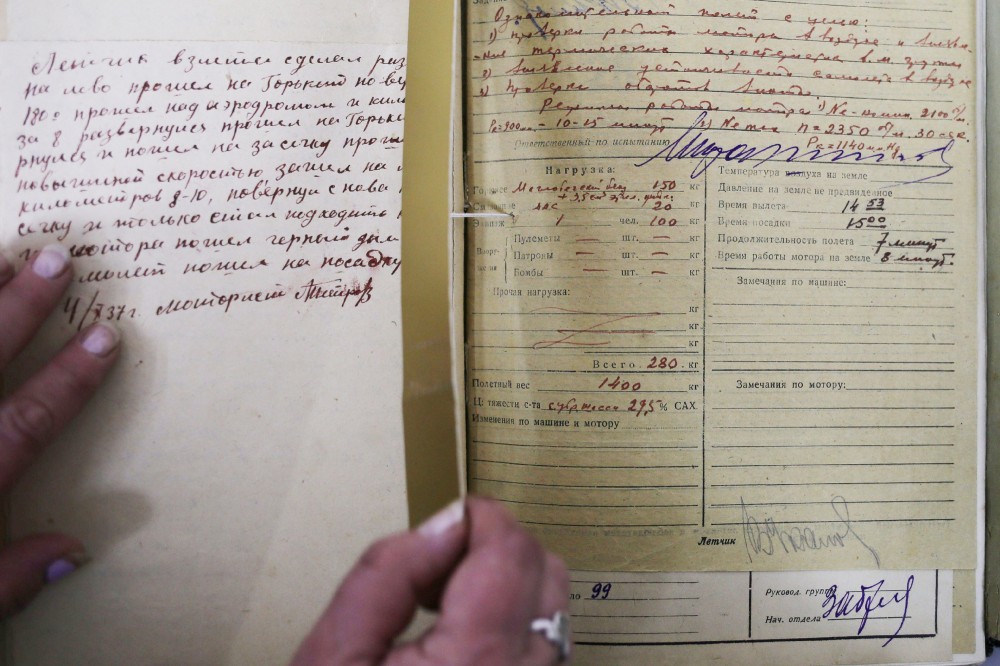 Летчик взлетел сделал раз
на лево прошел на Горький по вер
180° прошел над аэродромом и кил
за 8 развернулся прошел на Горьк
рнулся и пошел на засечку прош
повышиной скоростью зашел на
километров 8-10, повернул с нова
сечку и только стал подходить
мотора пошел черный дым
молет пошел на посадку
4/X 37г. моторист
Задание
Ознакомительный полет с целью:
1) проверки работы мотора в воздухе и выявле-
ния термических характеристик в.м. группы
2) выявление устойчивости самолета в воздухе
3) проверка оборотов винта.
Режимы работы мотора: 1) Nе-номин. 2100 об/м.
Pк=900мм - 10-15 минут 2) Nе max n=2350 об/м. 30 сек
Ответственный по испытанию
Pк=1140 мм Hg
Нагрузка:
Горючее 150 кг
+ 3,5 см³
20
Экипаж 1 чел. 100 кг
Воору-
жение
Пулеметы — шт. — кг
Патроны — шт. — кг
Бомбы — шт. — кг
Прочая нагрузка:
кг
кг
кг
Всего 280 кг
Полетный вес 1400 кг
Ц. тяжести с-та с убр. шасси 29,5 % САХ.
Изменения по машине и мотору
Температура воздуха на земле
Давление на земле не приведенное
Время вылета 14 53
Время посадки 15 00
Продолжительность полета 7 минут
Время работы мотора на земле 8 минут
Замечания по машине:
Замечания по мотору:
Летчик
ло 99
Руковод. групп
Нач. отдела